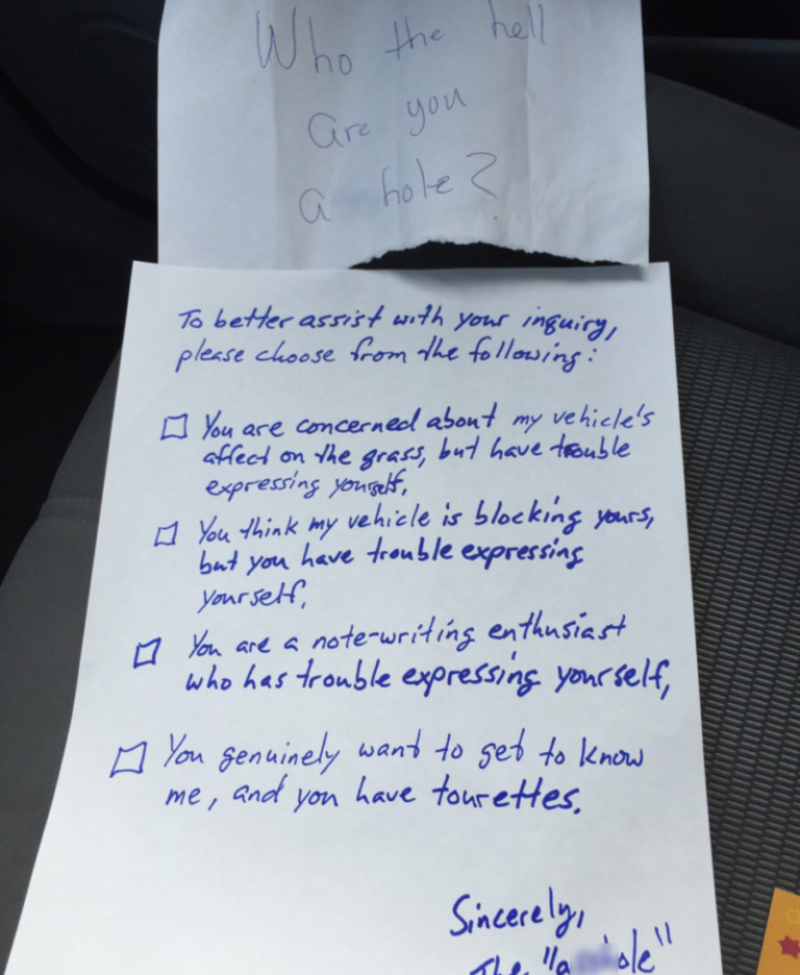 Who the hell
are you
a hole?
To better assist with your inquiry,
please choose from the following:
You are concerned about my vehicle's
affect on the grass, but have trouble
expressing yourself,
You think my vehicle is blocking yours,
but you have trouble expressing
yourself,
You are a note-writing enthusiast
who has trouble expressing yourself,
You genuinely want to get to know
me, and you have tourettes.
Sincerely,
The "a ole"